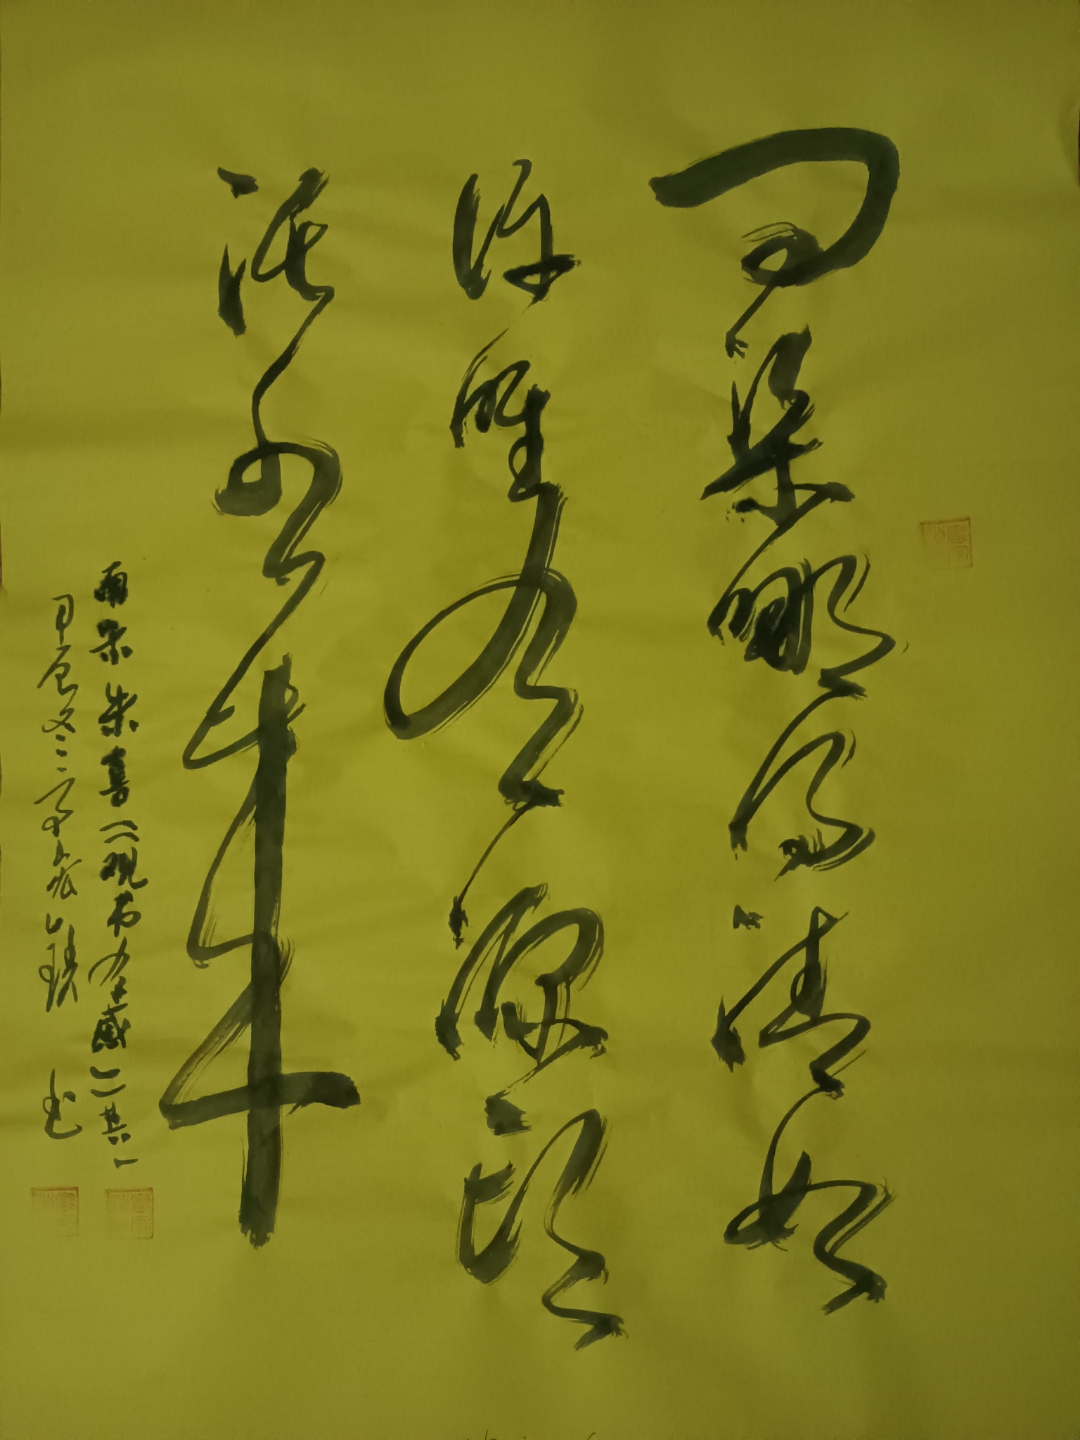 问渠哪得清如
许唯有源头
活水来
南宋朱喜《观书有感》其一
甲辰冬
书